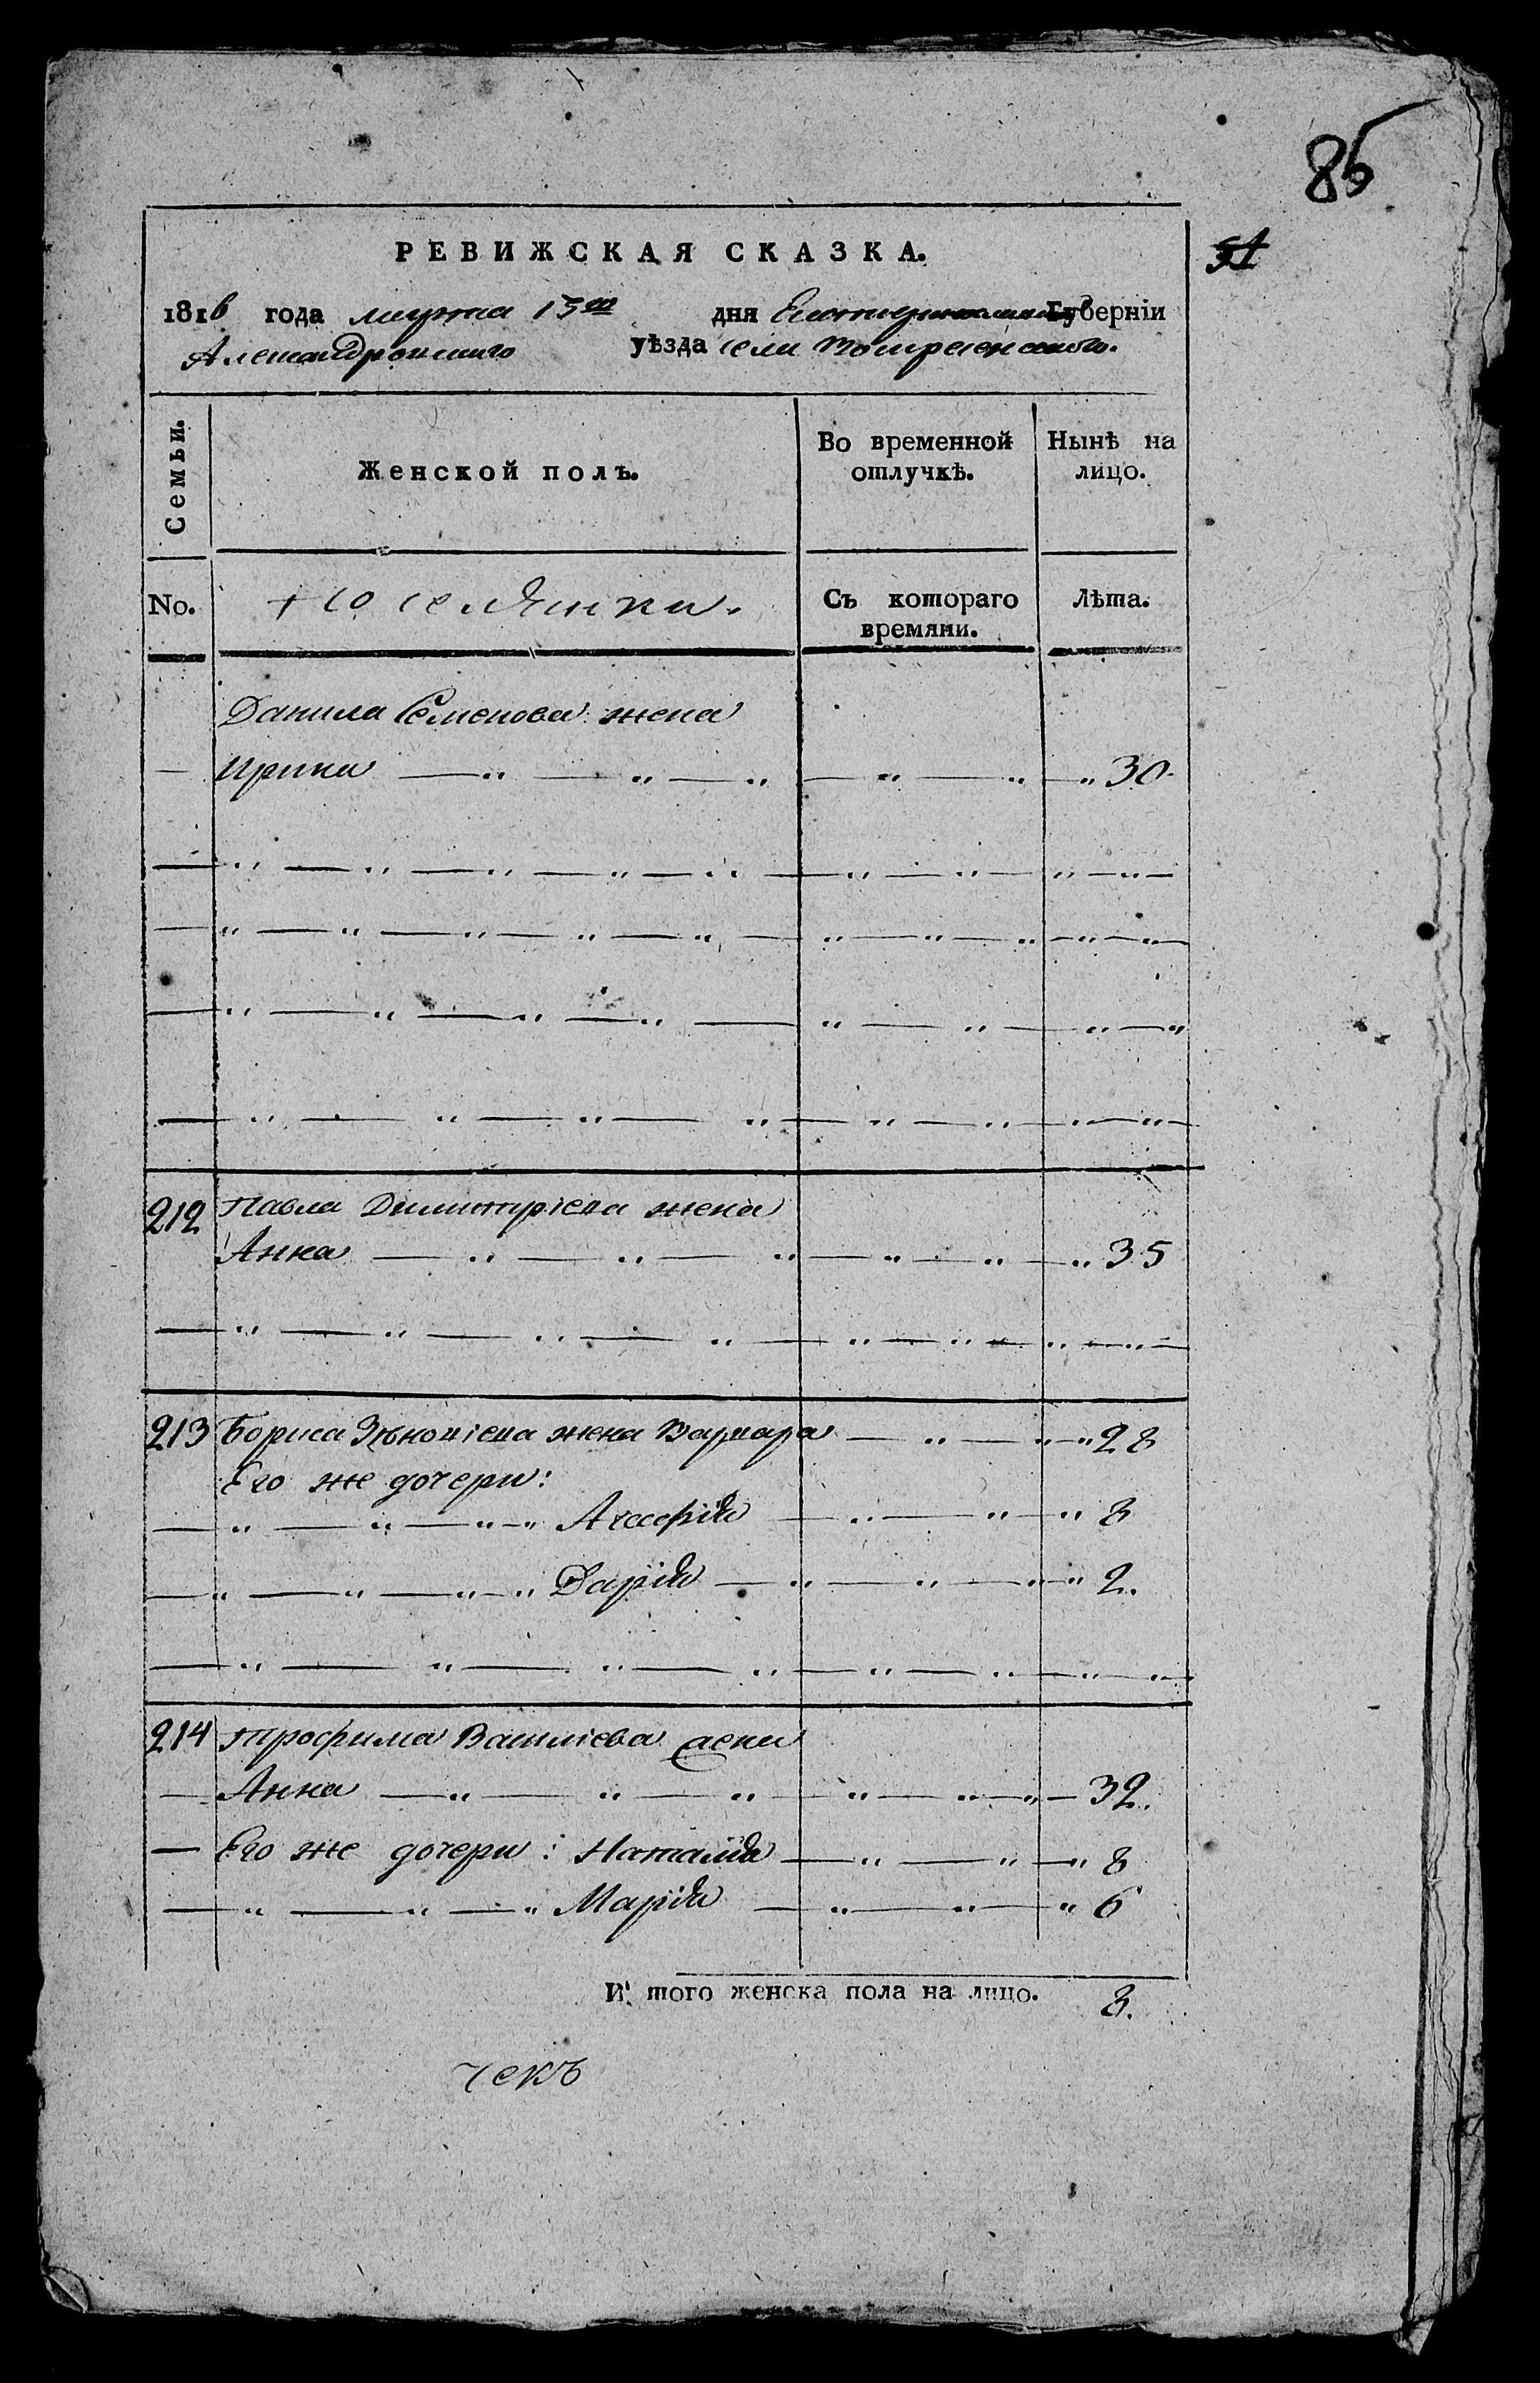 85
51
РЕВИЖСКАЯ СКАЗКА.
1816 года марта 15го дня Екатеринославской Губерніи
Александровскаго уѣзда села Воскресенскаго.
Семьи. Женской полъ. Во временной отлучкѣ. Нынѣ на лицо.
No. Поселянки. Съ котораго времяни. Лѣта.
Данила Семенова жена
— Ирина — „ — „ — „ — „ — „ — „ 30.
212 Павла Димитріева жена
Анна — „ — „ — „ — „ — „ — „ 35
213 Бориса Зѣновіева жена Варвара — „ — „ — „ 28
Его же дочери:
— „ — „ — „ — „ — „ — „ — „ 8
— „ — „ — „ — „ Дарія — „ — „ — „ „ 2.
214 Трофима Василіева жена
— Анна — „ — „ — „ — „ — „ — „ — 32.
— Его же дочери: Наталія — „ — „ — „ 8
— „ — „ — „ Марія — „ — „ — „ 6
И того женска пола на лицо. 8.